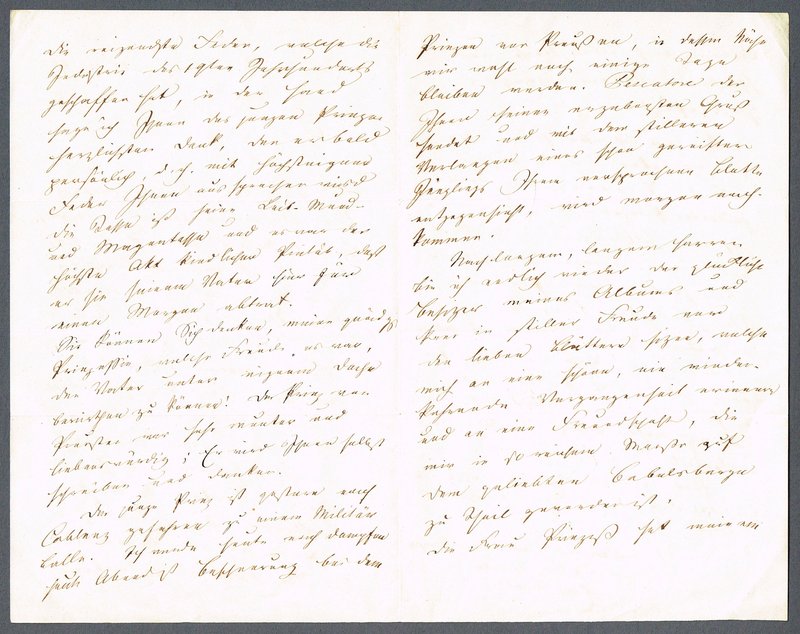 die reizendste Feder, welche die
Industrie des 19ten Jahrhunderts
geschaffen hat, in der Hand
sage ich Ihnen des jungen Prinzen
herzlichsten Dank, den er bald
persönlich, d. h. mit höchsteigner
Feder Ihnen aussprechen wird.
Die Tasse ist seine Leib- Mund-
und Magentasse und es war der
höchste Akt kindlicher Pietät, daß
er sie seinem Vater hier für
einen Morgen abtrat.
Sie können Sich denken, meine gnädigste
Prinzessin, welche Freude es war,
den Vater unter eigenem Dache
bewirthen zu können! Der Prinz von
Preußen war sehr munter und
liebenswürdig; Er wird Ihnen selbst
schreiben und danken.
Der junge Prinz ist gestern nach
Coblenz gefahren zu einem Militär
Balle. Ich werde heute nach dampfen
heute Abend ist Bescheerung bei dem
Prinzen von Preußen, in dessen Nähe
wir wohl noch einige Tage
bleiben werden. Pescatore der
Ihnen seinen ergebensten Gruß
sendet und mit dem stilleren
Verlangen eines schon gereiften
Jünglings Ihrem versprochenen Blatte
entgegensieht, wird morgen nach-
kommen.
Nach langem, langem Harren
bin ich endlich wieder der glückliche
Besitzer meines Albums und
kann in stiller Freude vor
den lieben Blättern sitzen, welche
mich an eine schöne, nie wieder-
kehrende Vergangenheit erinnern
und an eine Freundschaft, die
mir in so reichem Maaße auf
dem geliebten Babelsberge
zu Theil geworden ist.
Die Frau Prinzeß hat meinem